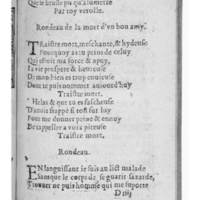 Par toy verolle.
Rondeau de la mort d'vn bon amy.
TRaistre mort, meschante, & hydeuse
Pourquoy as tu prins de celuy
Qui estoit ma force & apuy,
La vie prospere & heureuse
Or mon bien est trop
Dont te puis nommer aujourd'huy
Traistre mort.
Helas & que tu es fascheuse
D'auoir frappé si tost sur luy
Pour me donner peine & ennuy
appeller a voix piteuse
Traistre mort.
Rondeau.
EN languissant ie suis au lict malade
le corps de
Trouuer ne puis homme qui me supporte
D iiij